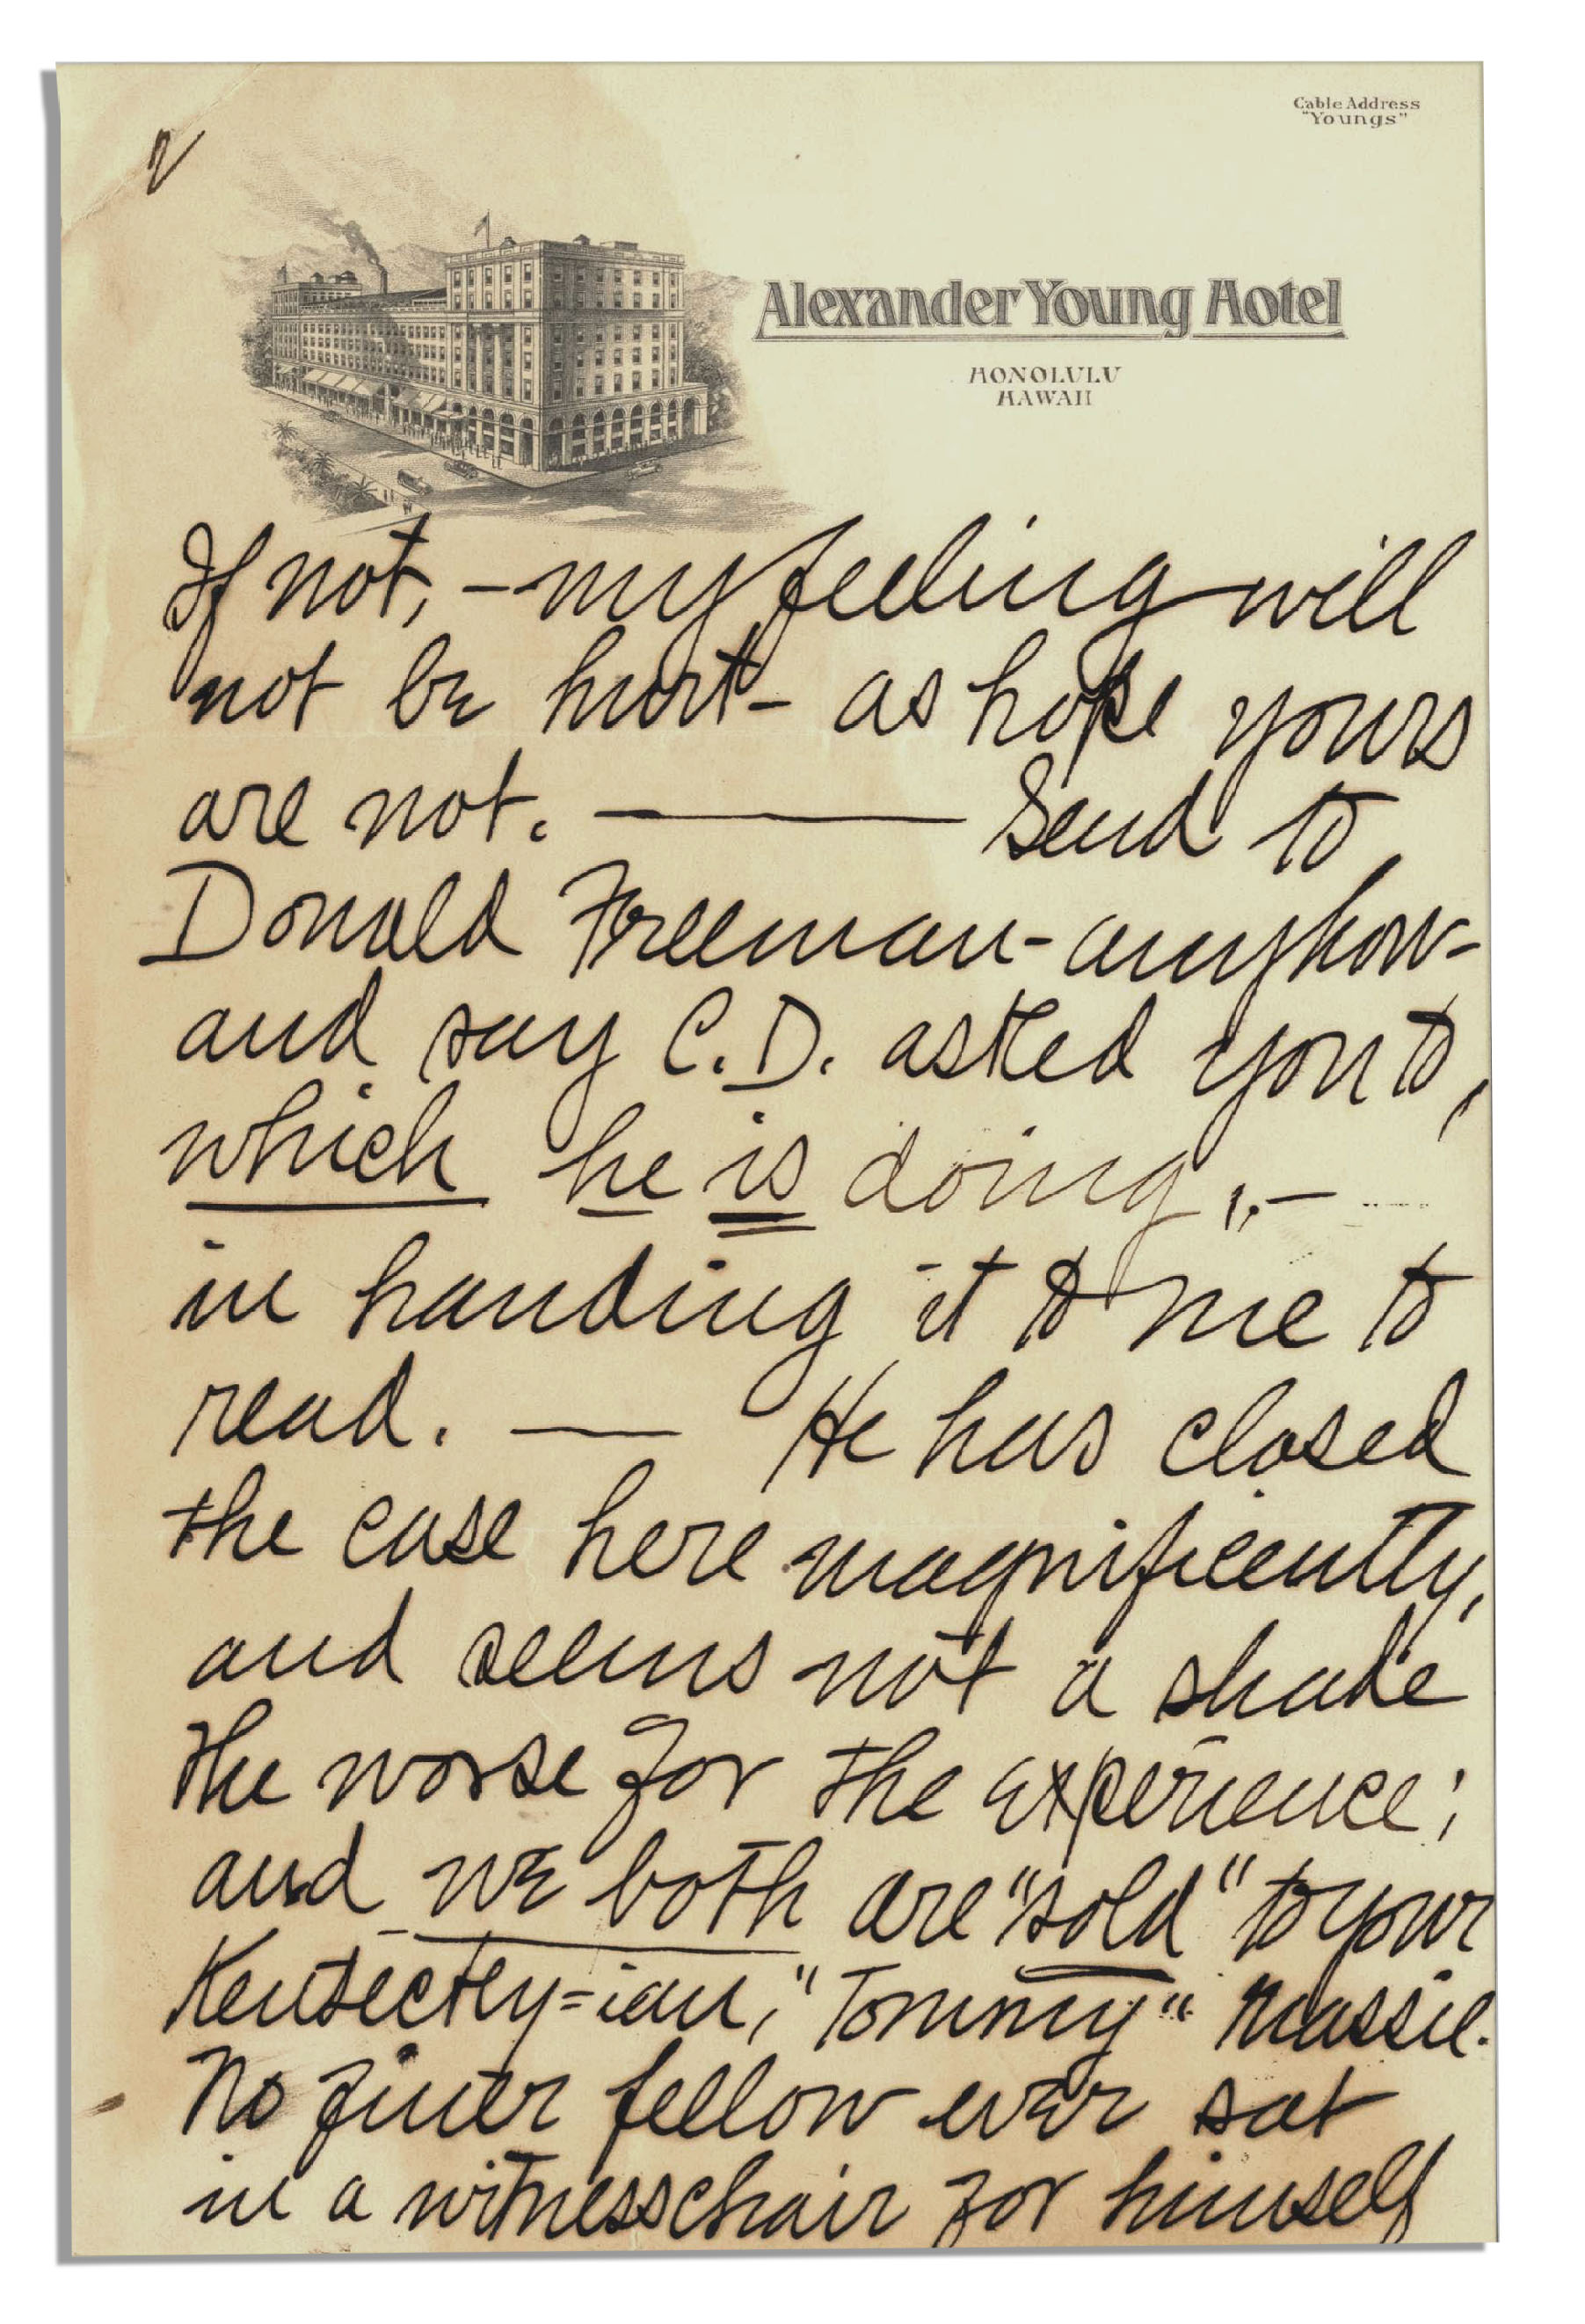 Cable Address
"Youngs"
2
Alexander Young Hotel
HONOLULU
HAWAII
If not, - my feeling will
not be hurt - as hope yours
are not. — Send to
Donald Freeman - anyhow -
and say C.D. asked you to,
which he is doing, -
in handing it to me to
read. — He has closed
the case here magnificently,
and seems not a shade
the worse for the experience;
and we both are "sold" to your
Kentuckty=ian, "Tommy" Massie.
No finer fellow ever sat
in a witness chair for himself